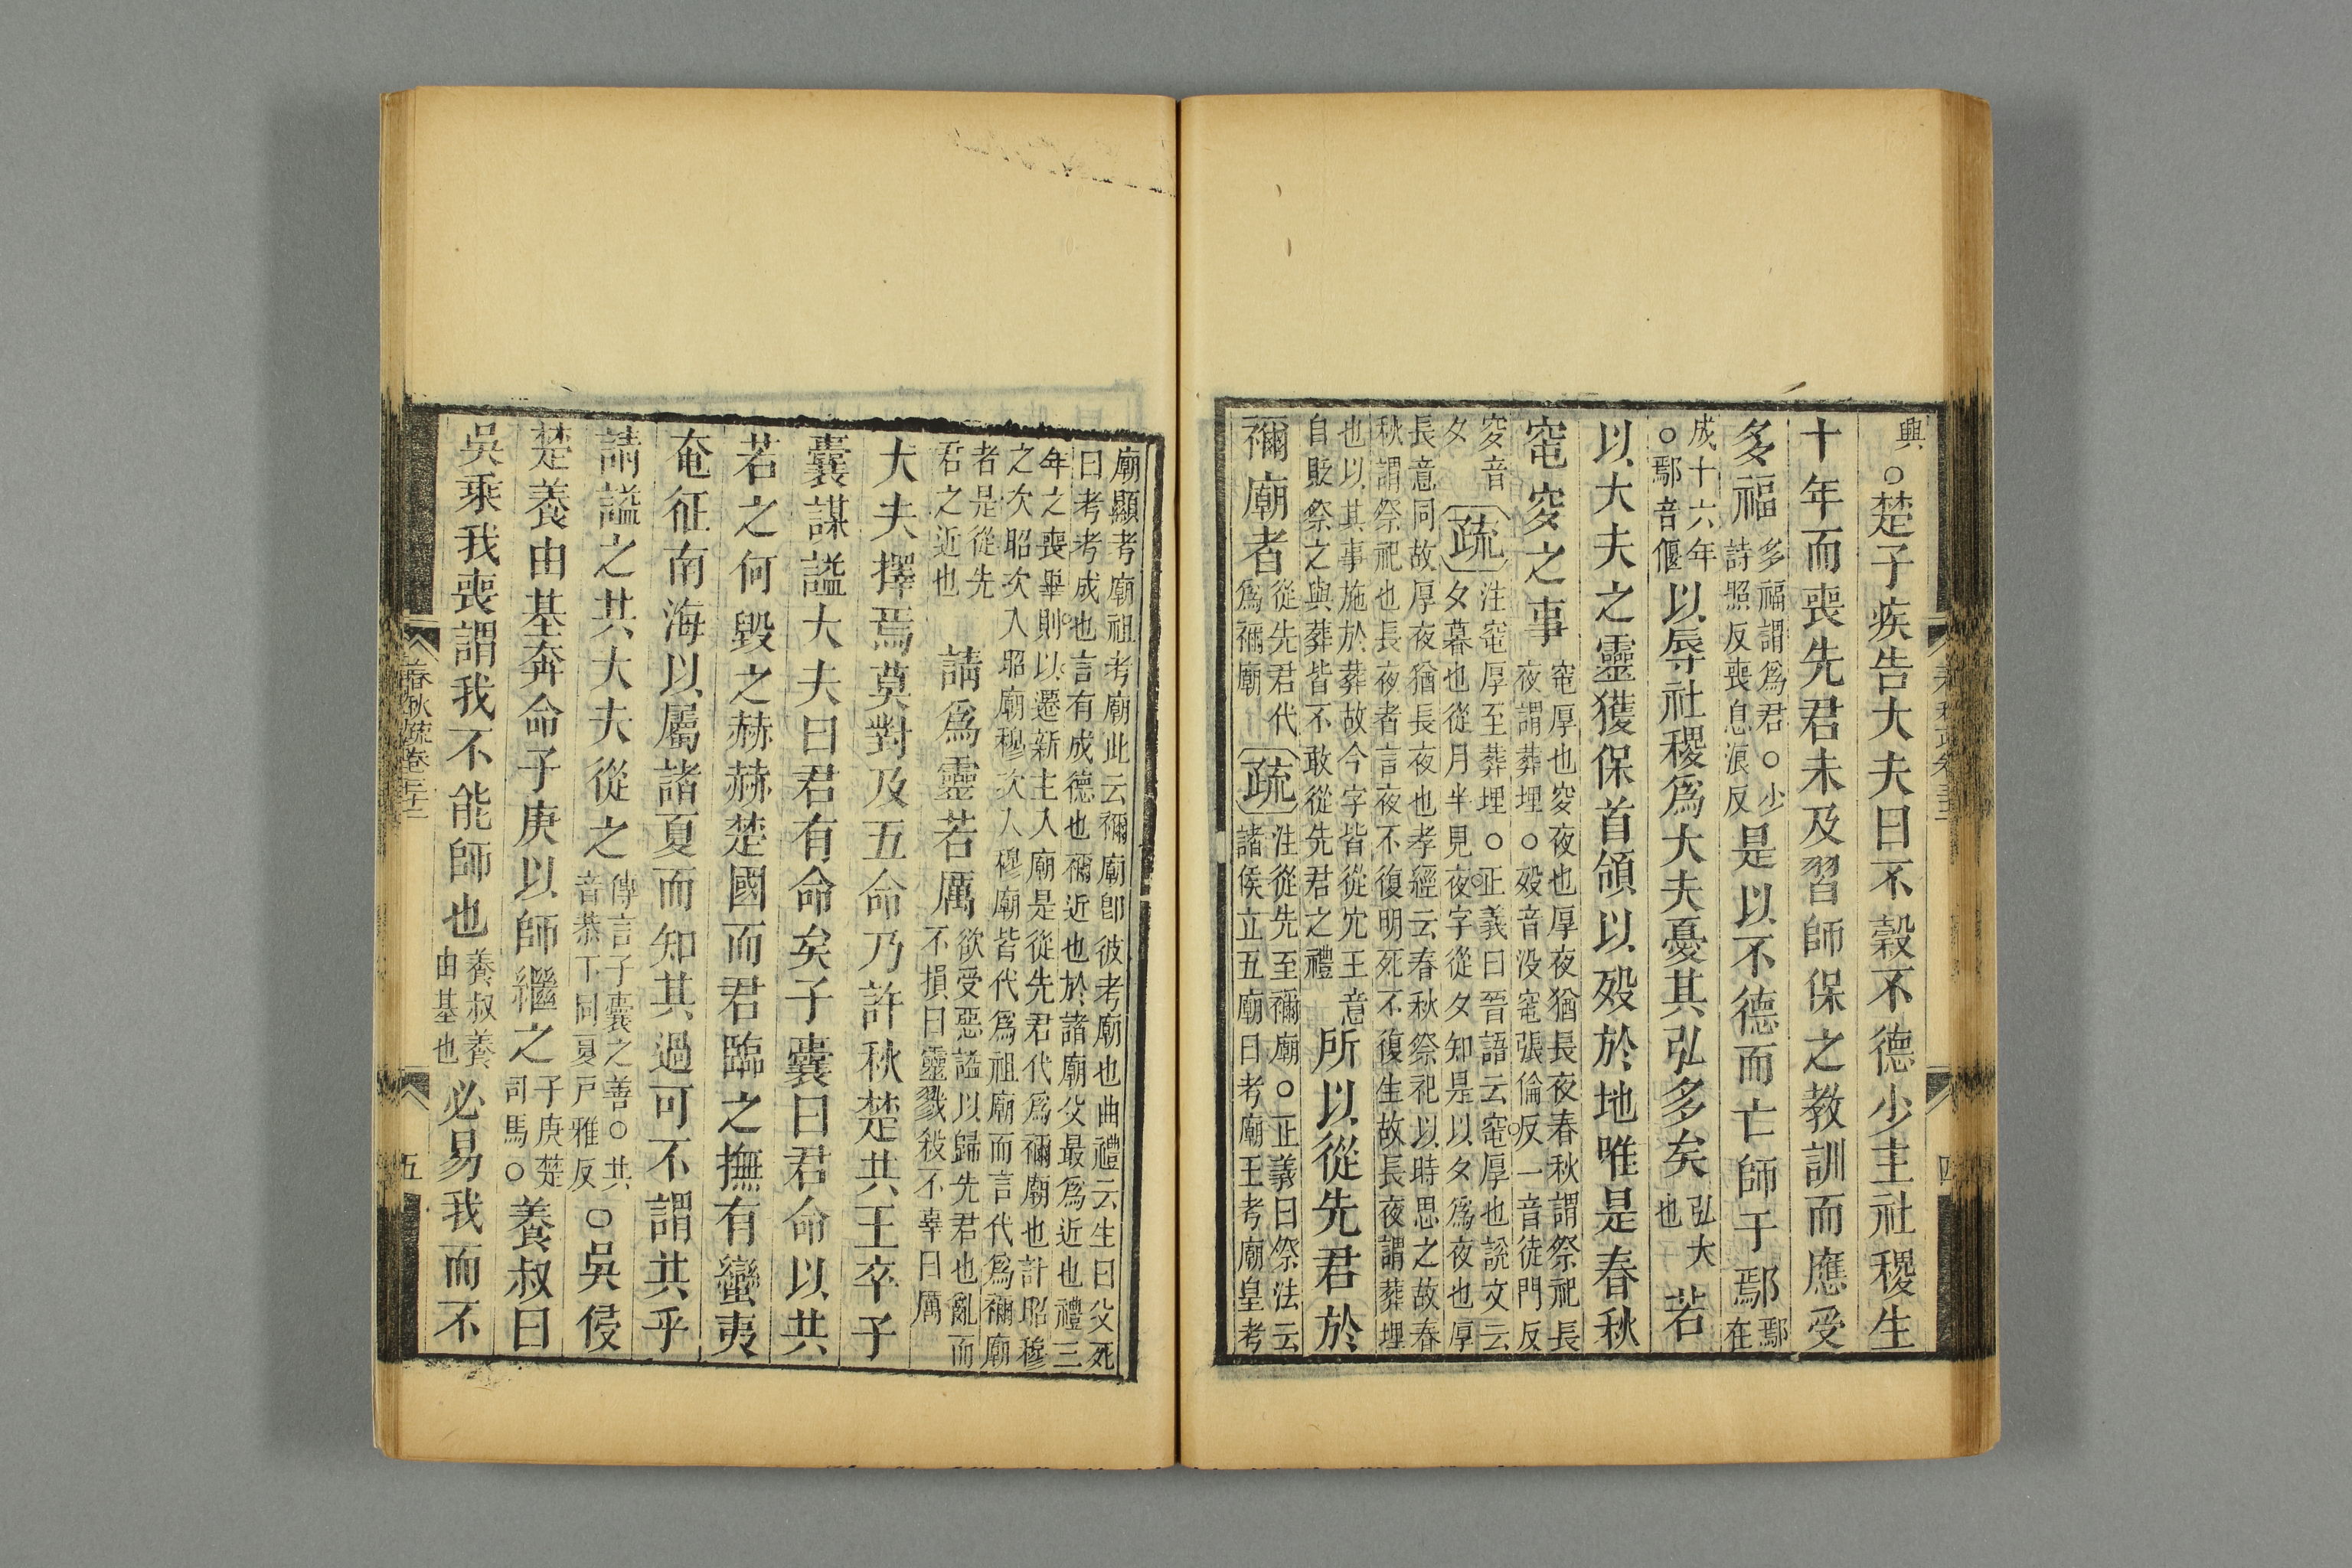 興○楚子疾告大夫曰不穀不德少主社稷生
十年而喪先君未及習師保之教訓而應受
多福多福謂爲君○少詩照反喪息浪反是以不德而亡師于鄢鄢在
成十六年○鄢音偃以辱社稷爲大夫憂其弘多矣弘大也若
以大夫之靈獲保首領以歿於地唯是春秋
窀穸之事窀厚也穸夜也厚夜猶長夜春秋謂祭祀長夜謂葬埋○歿音没窀張倫反一音徒門反
穸音夕疏注窀厚至葬埋○正義曰晉語云窀厚也說文云夕暮也從月半見夜字從夕知是以夕爲夜也厚
長意同故厚夜猶長夜也孝經云春秋祭祀以時思之故春秋謂祭祀也長夜者言夜不復明死不復生故長夜謂葬埋
也以其事施於葬故今字皆從穴王意自貶祭之與葬皆不敢從先君之禮所以從先君於
禰廟者從先君代爲禰廟疏注從先至禰廟○正義曰祭法云諸侯立五廟曰考廟王考廟皇考
廟顯考廟祖考廟此云禰廟卽彼考廟也曲禮云生曰父死曰考考成也言有成德也禰近也於諸廟父最爲近也禮三
年之喪畢則以遷新主入廟是從先君代爲禰廟也計昭穆之次昭次入昭廟穆次入穆廟皆代爲祖廟而言代爲禰廟
者是從先君之近也請爲靈若厲欲受惡謚以歸先君也亂而不損曰靈戮殺不辜曰厲
大夫擇焉莫對及五命乃許秋楚共王卒子
囊謀謚大夫曰君有命矣子囊曰君命以共
若之何毀之赫赫楚國而君臨之撫有蠻夷
奄征南海以屬諸夏而知其過可不謂共乎
請謚之共大夫從之傳言子囊之善○共音恭下同夏戸雅反○吳侵
楚養由基奔命子庚以師繼之子庚楚司馬○養叔曰
吳乘我喪謂我不能師也養叔養由基也必易我而不
春秋疏卷三十二
五